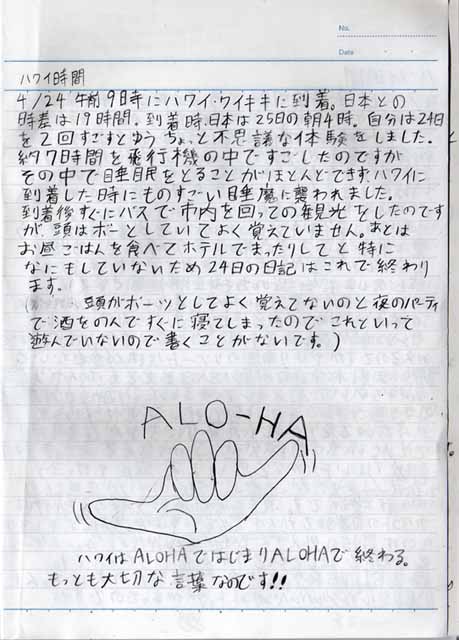 No.
Date
ハワイ時間
4/24 午前9時にハワイ・ワイキキに到着。日本との
時差は19時間。到着時、日本は25日の朝4時。自分は24日
を2回すごすとゆうちょっと不思議な体験をしました。
約7時間を飛行機の中ですごしたのですが
その中で睡眠をとることがほとんどできず、ハワイに
到着した時にものすごい睡魔に襲われました。
到着後すぐにバスで市内を回っての観光をしたのです
が、頭はボーとしていてよく覚えていません。あとは
お昼ごはんを食べてホテルでまったりしてと特に
なにもしていないため24日の日記はこれで終わり
ます。
(頭がボーッとしてよく覚えてないのと夜のパーティ
で酒をのんですぐに寝てしまったのでこれといって
遊んでいないので書くことがないです。)
ALO-HA
ハワイはALOHAではじまりALOHAで終わる。
もっとも大切な言葉なのです!!